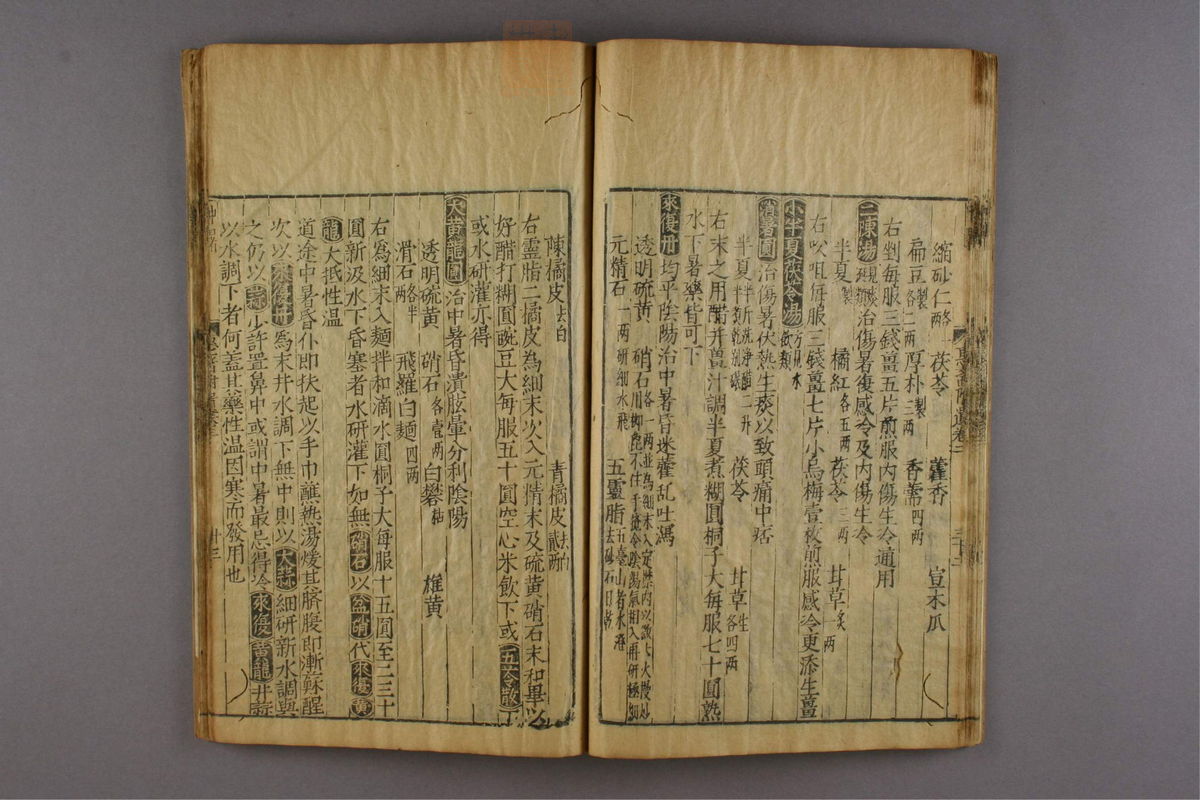 縮砂仁略 各一兩 茯苓 藿香 宣木瓜
扁豆製 各二兩 厚朴製 二兩 香薷四兩
右剉每服三錢薑五片煎服內傷生冷通用
二陳湯 治傷暑復感冷及內傷生冷
半夏製 橘紅各五兩 茯苓三兩 甘草炙一兩
右㕮咀每服三錢薑七片小烏梅壹枚煎服感冷更添生薑
小半夏茯苓湯 方見水飲類
消暑圓 治傷暑伏熱生痰以致頭痛中痞
半夏 茯苓 甘草生各四兩
右末之用醋并薑汁調半夏煮糊圓桐子大每服七十圓熟
水下暑藥皆可下
來復丹 均平陰陽治中暑昏迷藿亂吐瀉
透明硫黃 硝石各一兩並為細末入定
元精石一兩研細水飛 五靈脂去砂石日乾
陳橘皮去白 青橘皮去白貳兩
右靈脂二橘皮為細末次入元精末及硫黃硝石末和畢以
好醋打糊圓豌豆大每服五十圓空心米飲下或五苓散下
或水研灌亦得
大黃龍圓 治中暑昏潰眩暈分利陰陽
透明硫黃 硝石各壹兩 白礬枯 雄黃
滑石各半兩 飛羅白麵四兩
右為細末入麵拌和滴水圓桐子大每服十五圓至二三十
圓新汲水下昏塞者水研灌下如無硝石以盆硝代來復黃
龍大抵性溫
道途中暑昏仆即扶起以手巾蘸熱湯煖其臍腹即漸蘇醒
次以來復丹為末井水調下無中則以大蒜細研新水調與
之仍以蒜少許置鼻中或謂中暑最忌得冷來復黃龍井
以水調下者何盖其藥性溫因寒而發用也